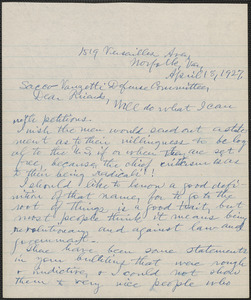 1519 Versailles Ave,
Norfolk, Va,
April 18, 1927.
Sacco Vanzetti Defense Committee,
Dear Friends,
Will do what I can
petitions.
I wish the men would send out a state
ment as to their willingness to be loy
al to the U.S. if or when they are set
free, because the chief criticism is as
to their being radicals!
I should like to know a good defi
nition of that name, for to go to the
root of things is a good trait, but
most people think it means being
revolutionary and against law and
government.
There have been some statements
in your bulletins that were rough
& vindictive, & I could not show
them to very nice people who